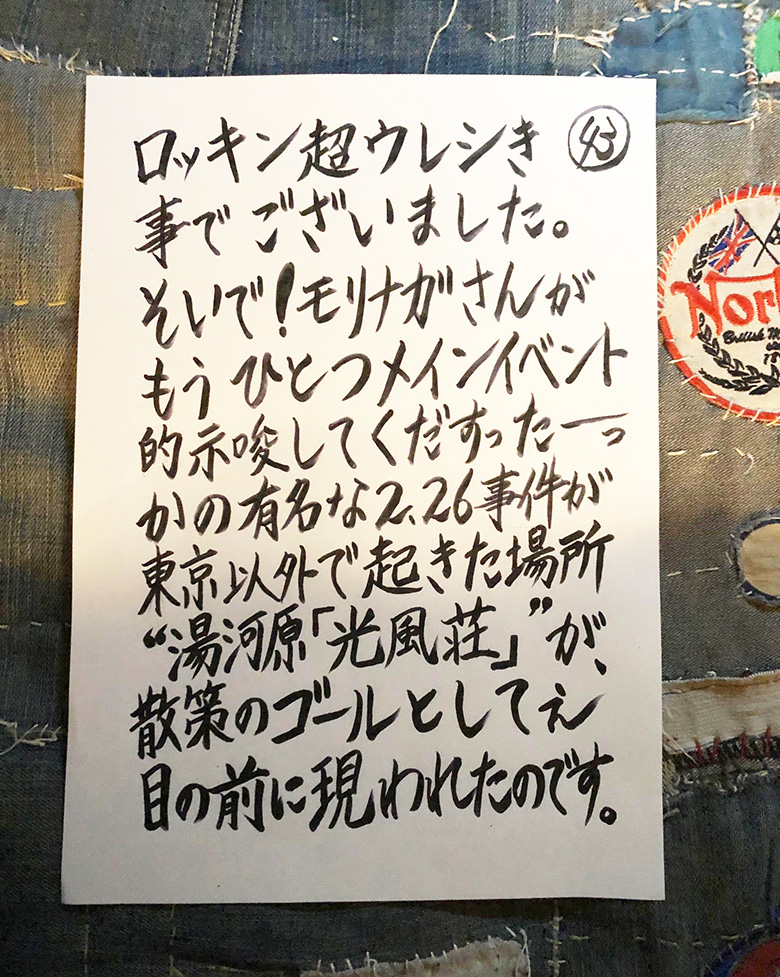 ロッキン超ウレシき
事でございました。
そいで!モリナガさんが
もうひとつメインイベント
的示唆してくだすったーっ
かの有名な2.26事件が
東京以外で起きた場所
“湯河原「光風荘」”が、
散策のゴールとしてぇ
目の前に現われたのです。
Nor
British